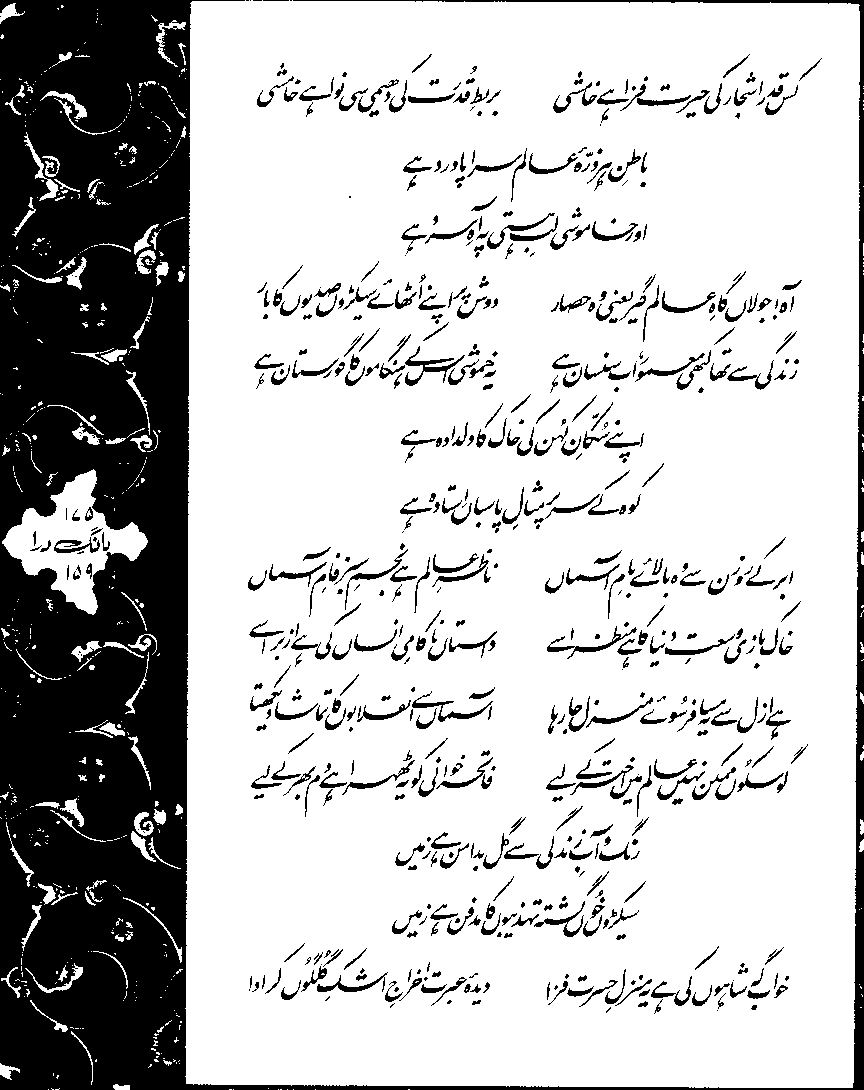 کس قدر اشجار کی حیرت فزا ہے خامشی بربطِ قُدرت کی دھیمی سی نوا ہے خامشی
باطنِ ہر ذرّۂ عالم سراپا درد ہے
اور خاموشی لبِ ہستی پہ آہِ سرد ہے
آہ! جولاں گاہِ عالم گیر یعنی وہ حصار دوش پر اپنے اُٹھائے سیکڑوں صدیوں کا بار
زندگی سے تھا کبھی معمور، اب سنسان ہے یہ خموشی اس کے ہنگاموں کا گورستان ہے
اپنے سُکّانِ کُہن کی خاک کا دلدادہ ہے
کوہ کے سر پر مثالِ پاسباں استادہ ہے
ابر کے روزن سے وہ بالائے بامِ آسماں ناظرِ عالم ہے نجمِ سبز فامِ آسماں
خاک بازی وسعتِ دنیا کا ہے منظر اسے داستاں ناکامیِ انساں کی ہے ازبر اسے
ہے ازل سے یہ مسافر سُوئے منزل جا رہا آسماں سے انقلابوں کا تماشا دیکھتا
گو سکُوں ممکن نہیں عالم میں اختر کے لیے فاتحہ خوانی کو یہ ٹھہرا ہے دم بھر کے لیے
رنگ و آبِ زندگی سے گُل بدامن ہے زمیں
سیکڑوں خُوں گشتہ تہذیبوں کا مدفن ہے زمیں
خواب گہ شاہوں کی ہے یہ منزلِ حسرت فزا دیدۂ عبرت! خراجِ اشکِ گُلگُوں کر ادا
۱۷۵
بانگِ درا
۱۵۹